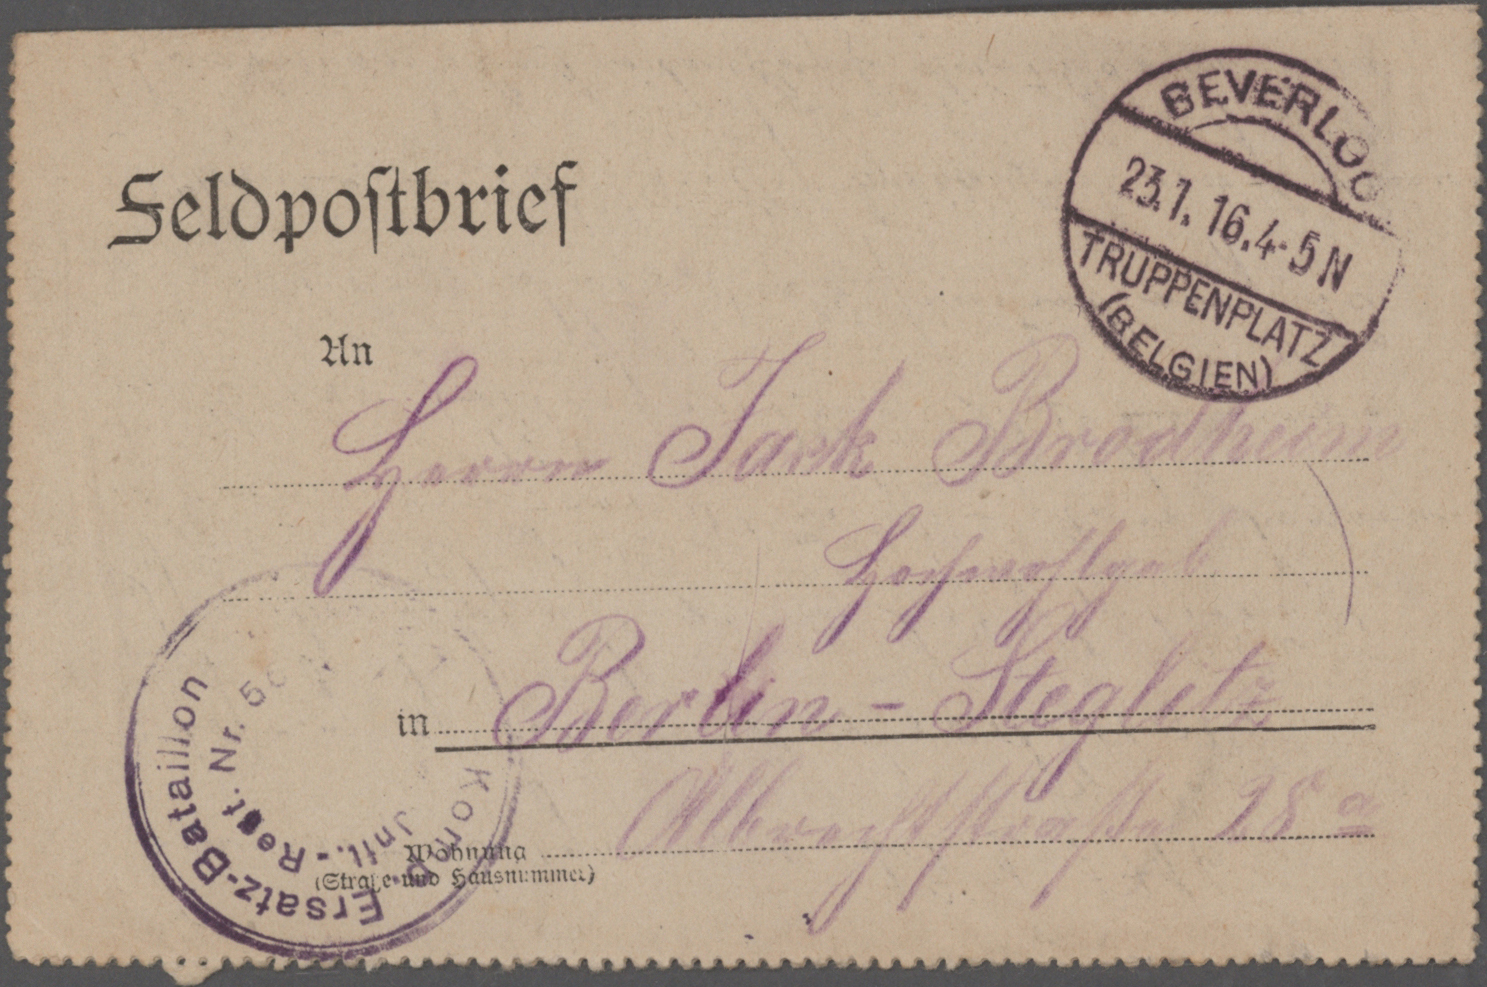 Feldpostbrief
BEVERLOO
23.1.16.4-5N
TRUPPENPLATZ
(BELGIEN)
An
Herrn Jack Brodheim
Hochwohlgeb
in Berlin-Steglitz
Albrechtstraße 18a
Wohnung
(Straße und Hausnummer)
Ersatz-Bataillon
Inft.-Regt. Nr.